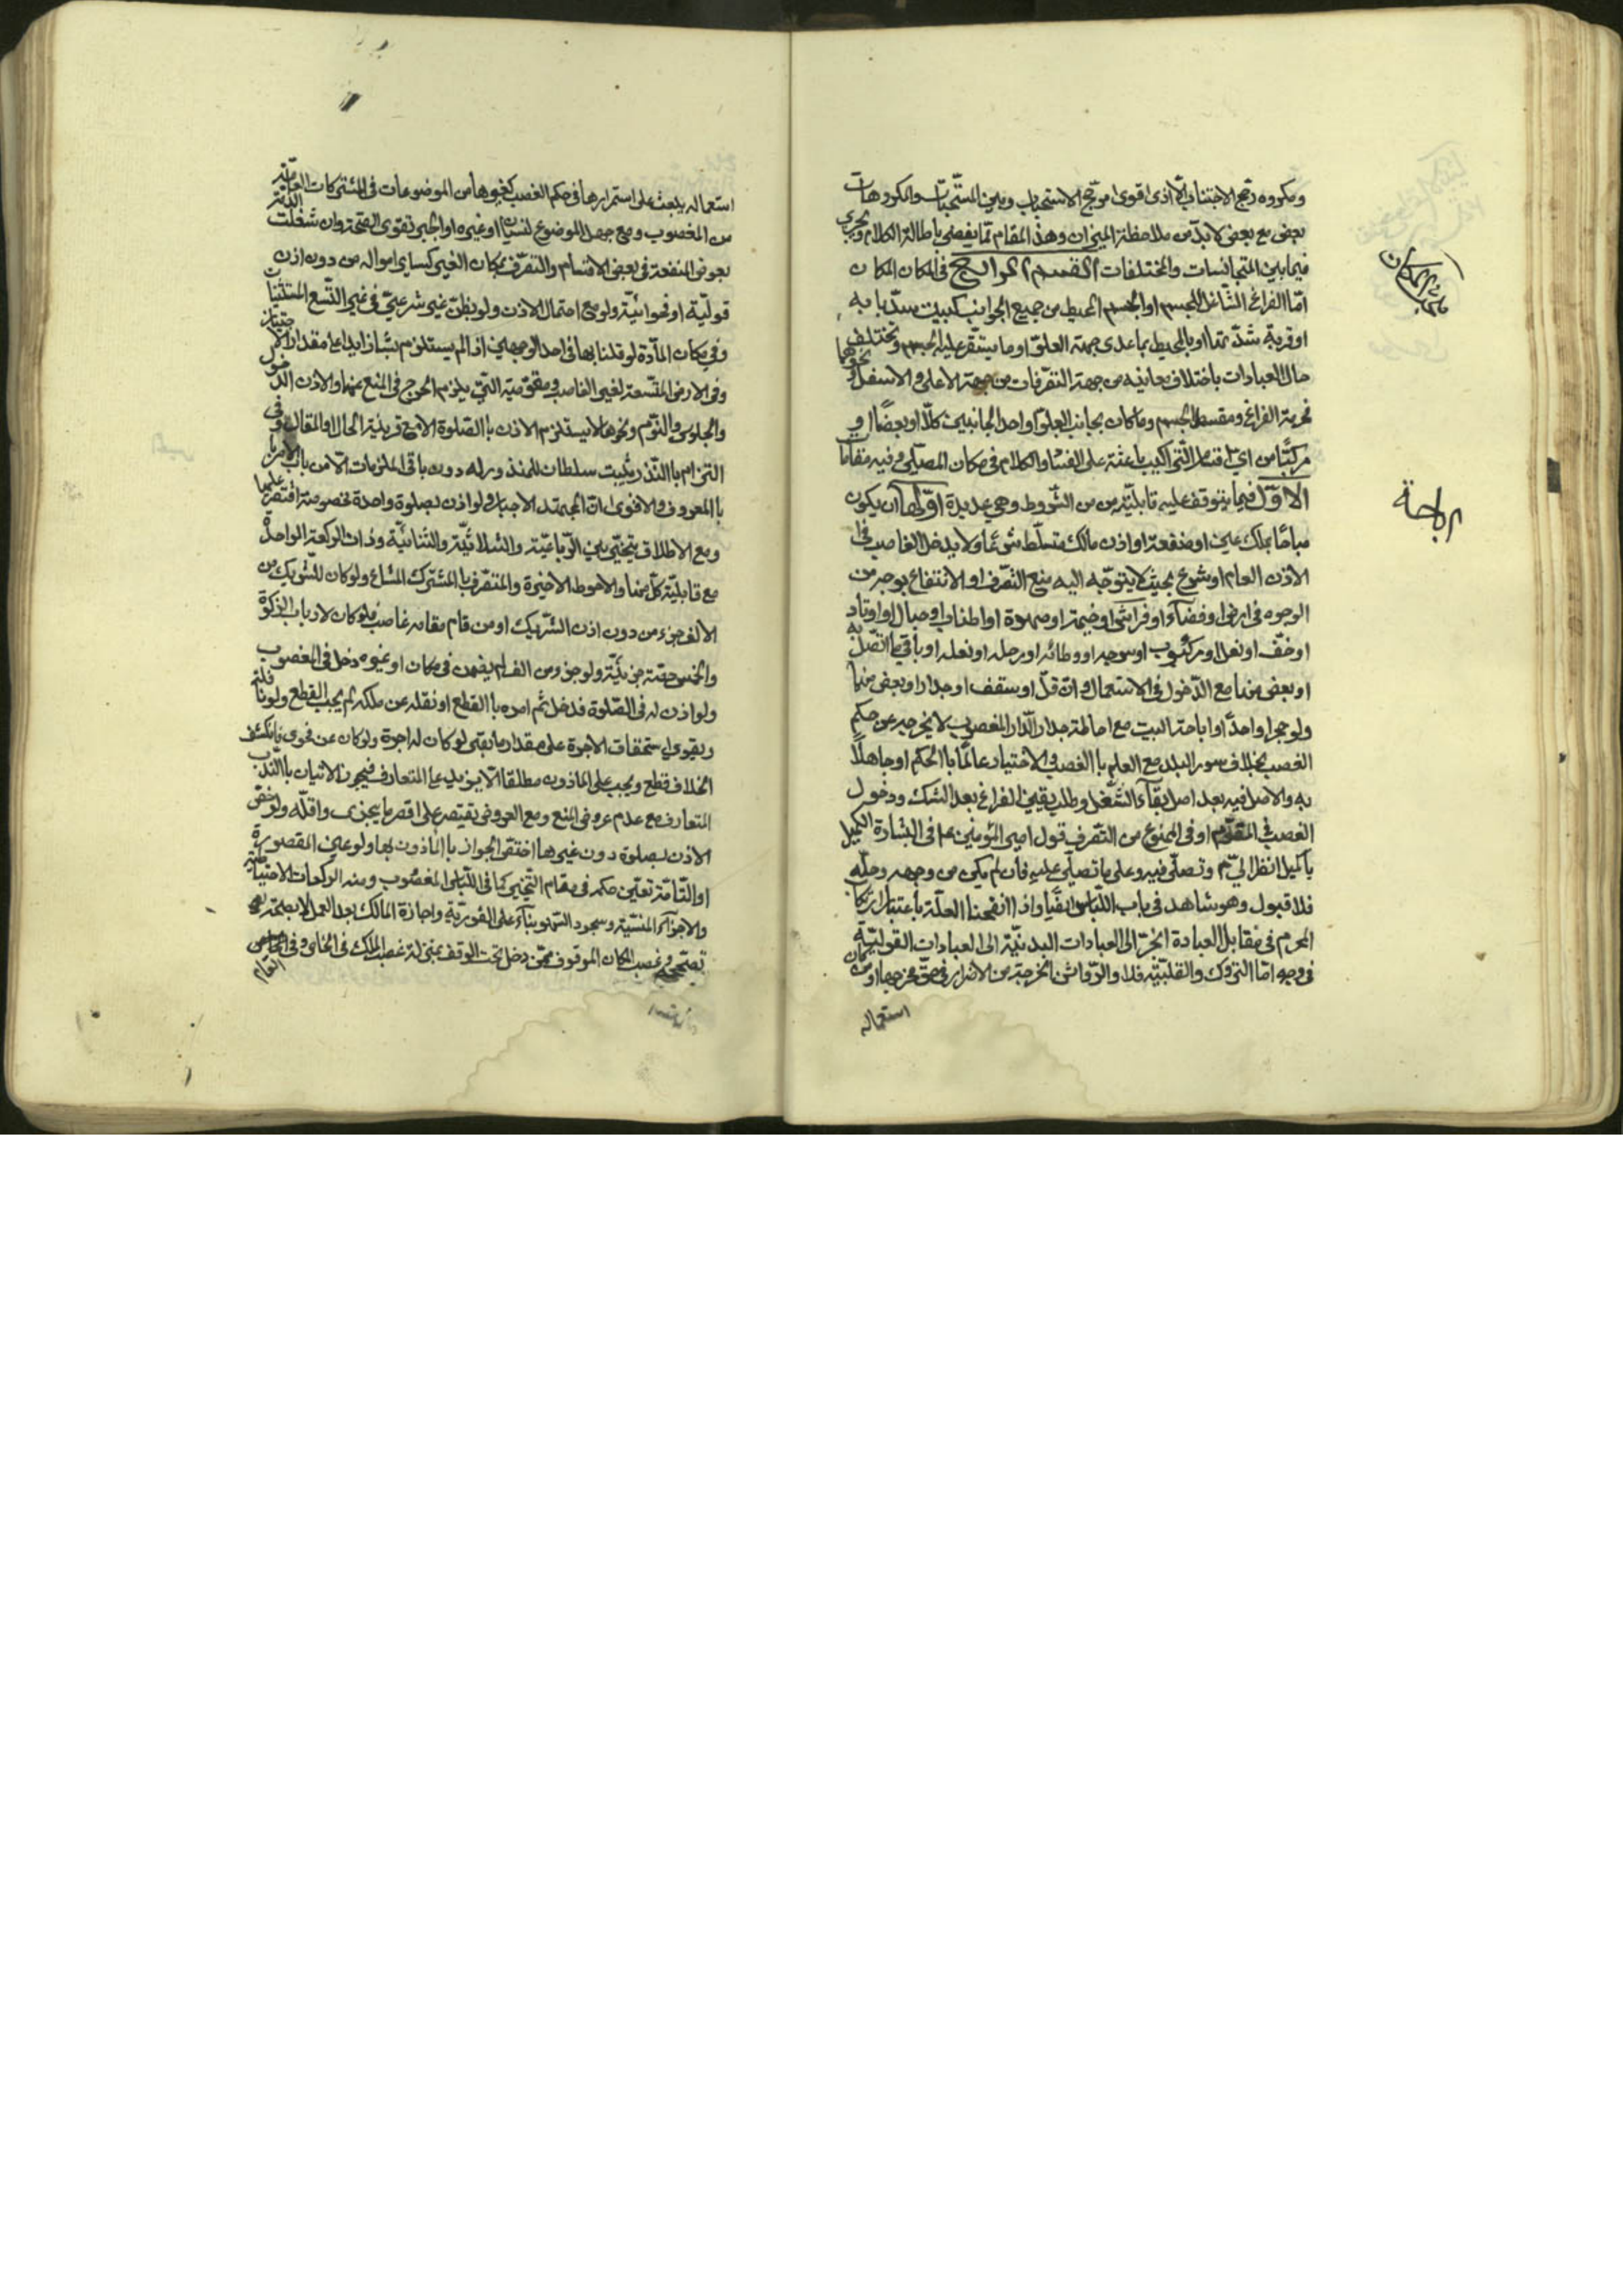 ومكروه رجح الاجتناب الّا اذى اقوى مرجّح الاستحباب وبين المستحبّات والمكروهات
بعض مع بعض لابدّ من ملاحظة الميزان وهذا المقام ممّا يفضى باطالة الكلام ويجرى
فيما بين المتجانسات والمختلفات القسم الرابع في المكان المكان
امّا الفراغ الشاغل للجسم او الجسم المحيط من جميع الجوانب كبيت سدّ بابه
او قربة شدّ فمها او بالمحيط بما عدى جهة العلوّ او ما يستقرّ عليه الجسم وتختلف
حال العبادات باختلاف معانيه من جهة التصرّفات من جهة الاعلى والاسفل ونحوهما
كحرمة الفراغ ومسقط الجسم وما كان بجانب العلو او احد الجانبين كلّا او بعضًا او
مركبًا من اي اقسام التركيب باعثة على الفساد والكلام في مكان المصلّي وفيه مقامات
الاوّل فيما يتوقف عليه قابليّته من الشروط وهي عديدة اوّلها ان يكون
مباحًا بملك عين او منفعة او اذن مالك متسلّط شرعًا ولا يدخل الغاصب في
الاذن العام او شرع بحيث لا يتوجّه اليه منع التصرّف او الانتفاع بوجه من
الوجوه في ارض او فضاء او فراش او خيمة او صهوة او اطناب او حبال او اوتاد
او خفّ او نعل او مركوب او سرجه او وطائه او رحله او نعله او باقي ما اتّصل به
او بعض منها مع الدّخول في الاستعمال وان قلّ او سقف او جدار او بعض منهما
ولو حجرا واحدًا او اباحة البيت مع احاطة جدار الدّار المغصوب لا يخرجه عن حكم
الغصب بخلاف سور البلد مع العلم بالغصب والاختيار عالمًا بالحكم او جاهلًا
به والاصل فيه بعد اصل بقاء الشغل وطلب يقين الفراغ بعد الشك ودخول
الغصب في المقوّم او في الممنوع من التصرف قول امير المؤمنين ع في البشارة لكميل
يا كميل انظر الى م وتصلّى فيه وعلى ما تصلّى عليه فان لم يكن من وجهه وحلّه
فلا قبول وهو شاهد في باب اللباس ايضًا واذا انقحنا العلّة باعتبار ارتكاب
المحرم في مقابل العبادة انجرّ الى العبادات البدنيّة الى العبادات القوليّة
في وجه امّا التروك والقلبيّة فلا والرّواشن المخرجة من الاضرار في حقّ مخرجها او من كان
استعماله
مبحث المكان
الاباحة
استعماله يبعث على استمرارها في حكم الغصب كغيرها من الموضوعات في المشتركات العامّة
من المغصوب ومع جهل الموضوع لنسيان او غيره او الجبر تقوى الصحّة وان شغلت الذمّة
بعوض المنفعة في بعض الاقسام والتصرّف بمكان الغير كساير امواله من دون اذن
قوليّة او فحوائيّة ولو مع احتمال الاذن ولو بظنّ غير شرعيّ في غير التّسع المستثنيات
وفي مكان المآدّة لو قلنا بها في احد الوجهين اذا لم يستلزم مشاززايدا على مقدار الاجتياز
وفي الارض المتّسعة لغير الغاصب ومقوّميه التي يلزم الحرج في المنع عنها والاذن الدّخول
والجلوس والنّوم ونحوها لا يستلزم الاذن بالصّلوة الّا مع قرينة الحال او المقال وفي
التزام بالنّذر يثبت سلطان للمنذور له دون باقي الملزمات الّا من باب الامر
بالمعروف والاقوى انّ للمجتهد الاجبار ولو اذن بصلوة واحدة مخصوصة اقتصر عليها
ومع الاطلاق يتخيّر بين الرّباعيّة والثلاثيّة والثنائيّة وذات الركعة الواحدة
مع قابليّة كلّ منها والاحوط الاخيرة والمتصرّف بالمشترك المشاع ولو كان للشريك من
الالف جزء من دون اذن الشريك او من قام مقامه غاصب فلو كان لارباب الزكوة
والخمس حصّة جزئيّة ولو جزء من الف لم يضمن في مكان او غيره دخل في المغصوب
ولو اذن له في الصّلوة فدخل ثم امره بالقطع او نقله عن ملكه لم يجب القطع ولو
ويقوى استحقاق الاجرة على مقدار ما بقى لو كان له اجرة ولو كان عن فحوى فانكشف
الخلاف قطع ويجب على الماذون مطلقا الّا يزيد على المتعارف فيجوز الاتيان بالندب
المتعارف مع عدم عروض المنع ومع العروض يقتصر على اقصر ما يجزى واقلّه ولو خصّ
الاذن بصلوة دون غيرها اختصّ الجواز بالماذون بها ولو عين المقصورة
او التّامّة تعيّن حكمه في مقام التّخيير كما في اللّباس المغصوب ومنه الركعات الاحتياطيّة
والاجزاء المنسيّة وسجود السّهو بناء على الفوريّة واجازة المالك بعد العمل لا
تصحّحه وغصب المكان الموقوف ممّن دخل تحت الوقف بمنزلة غصب الملك في الخاص وفي
العام